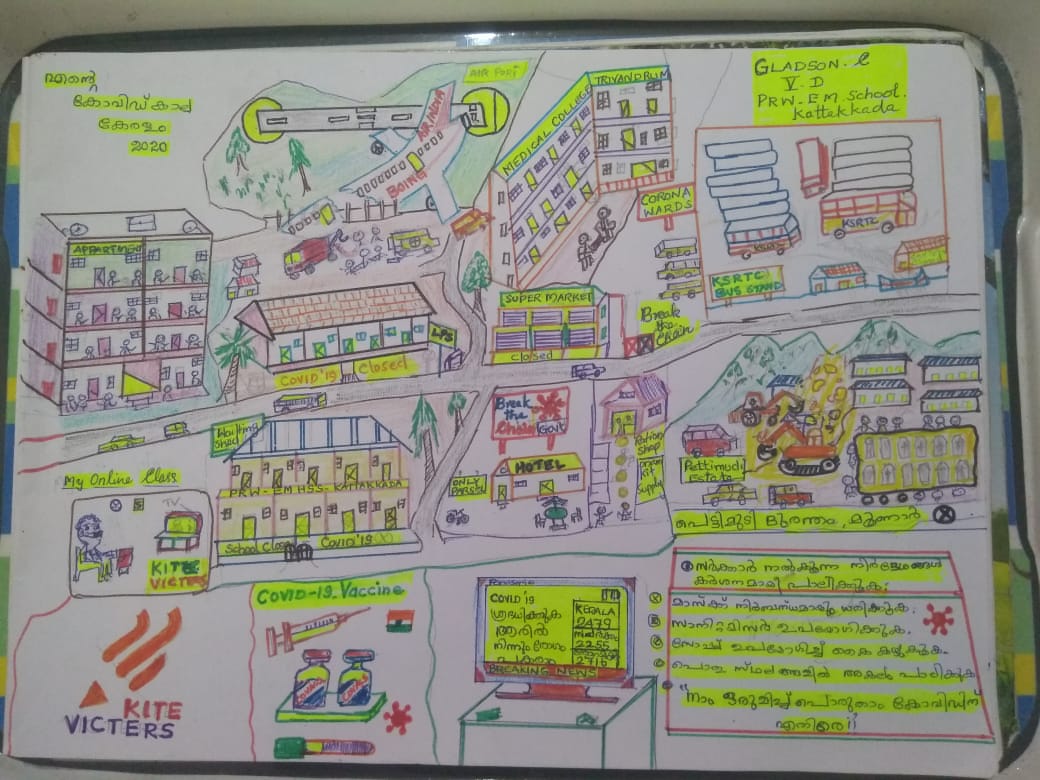 എന്റെ
കോവിഡ് കാല
കേരളം
2020
AIR PORT
AIR INDIA
BOING
MEDICAL COLLEGE
TRIVANDRUM
CORONA
WARDS
GLADSON. C
V. D
PRW. EM. School.
Kattakkada
KSRTC
KSRTC
BUS STAND
APPARTMENT
LPS
COVID '19 Closed
SUPER MARKET
Closed
Break
the
Chain
Waiting
Shed
PRW - EM HSS - KATTAKKADA
School Close
Covid '19
Break
the
Chain
Govt
HOTEL
ONLY
PARSEL
Ration
Shop
Kit
Supply
Pettimudi
Estate
പെട്ടിമുടി ദുരന്തം, മൂന്നാർ
My Online Class
TV
KITE
VICTERS
KITE
VICTERS
COVID-19 Vaccine
COVID '19
ശ്രദ്ധിക്കുക
KERALA
2479
2255
2716
നിന്നും രോഗം
BREAKING NEWS
സർക്കാർ നൽകുന്ന നിർദ്ദേശങ്ങൾ
കർശനമായി പാലിക്കുക:
മാസ്ക് നിർബന്ധമായും ധരിക്കുക.
സാനിറ്റൈസർ ഉപയോഗിക്കുക.
സോപ്പ് ഉപയോഗിച്ച് കൈ കഴുകുക.
പൊതു സ്ഥലങ്ങളിൽ അകലം പാലിക്കുക
"നാം ഒരുമിച്ച് പൊരുതാം കോവിഡിന്
എതിരെ!!